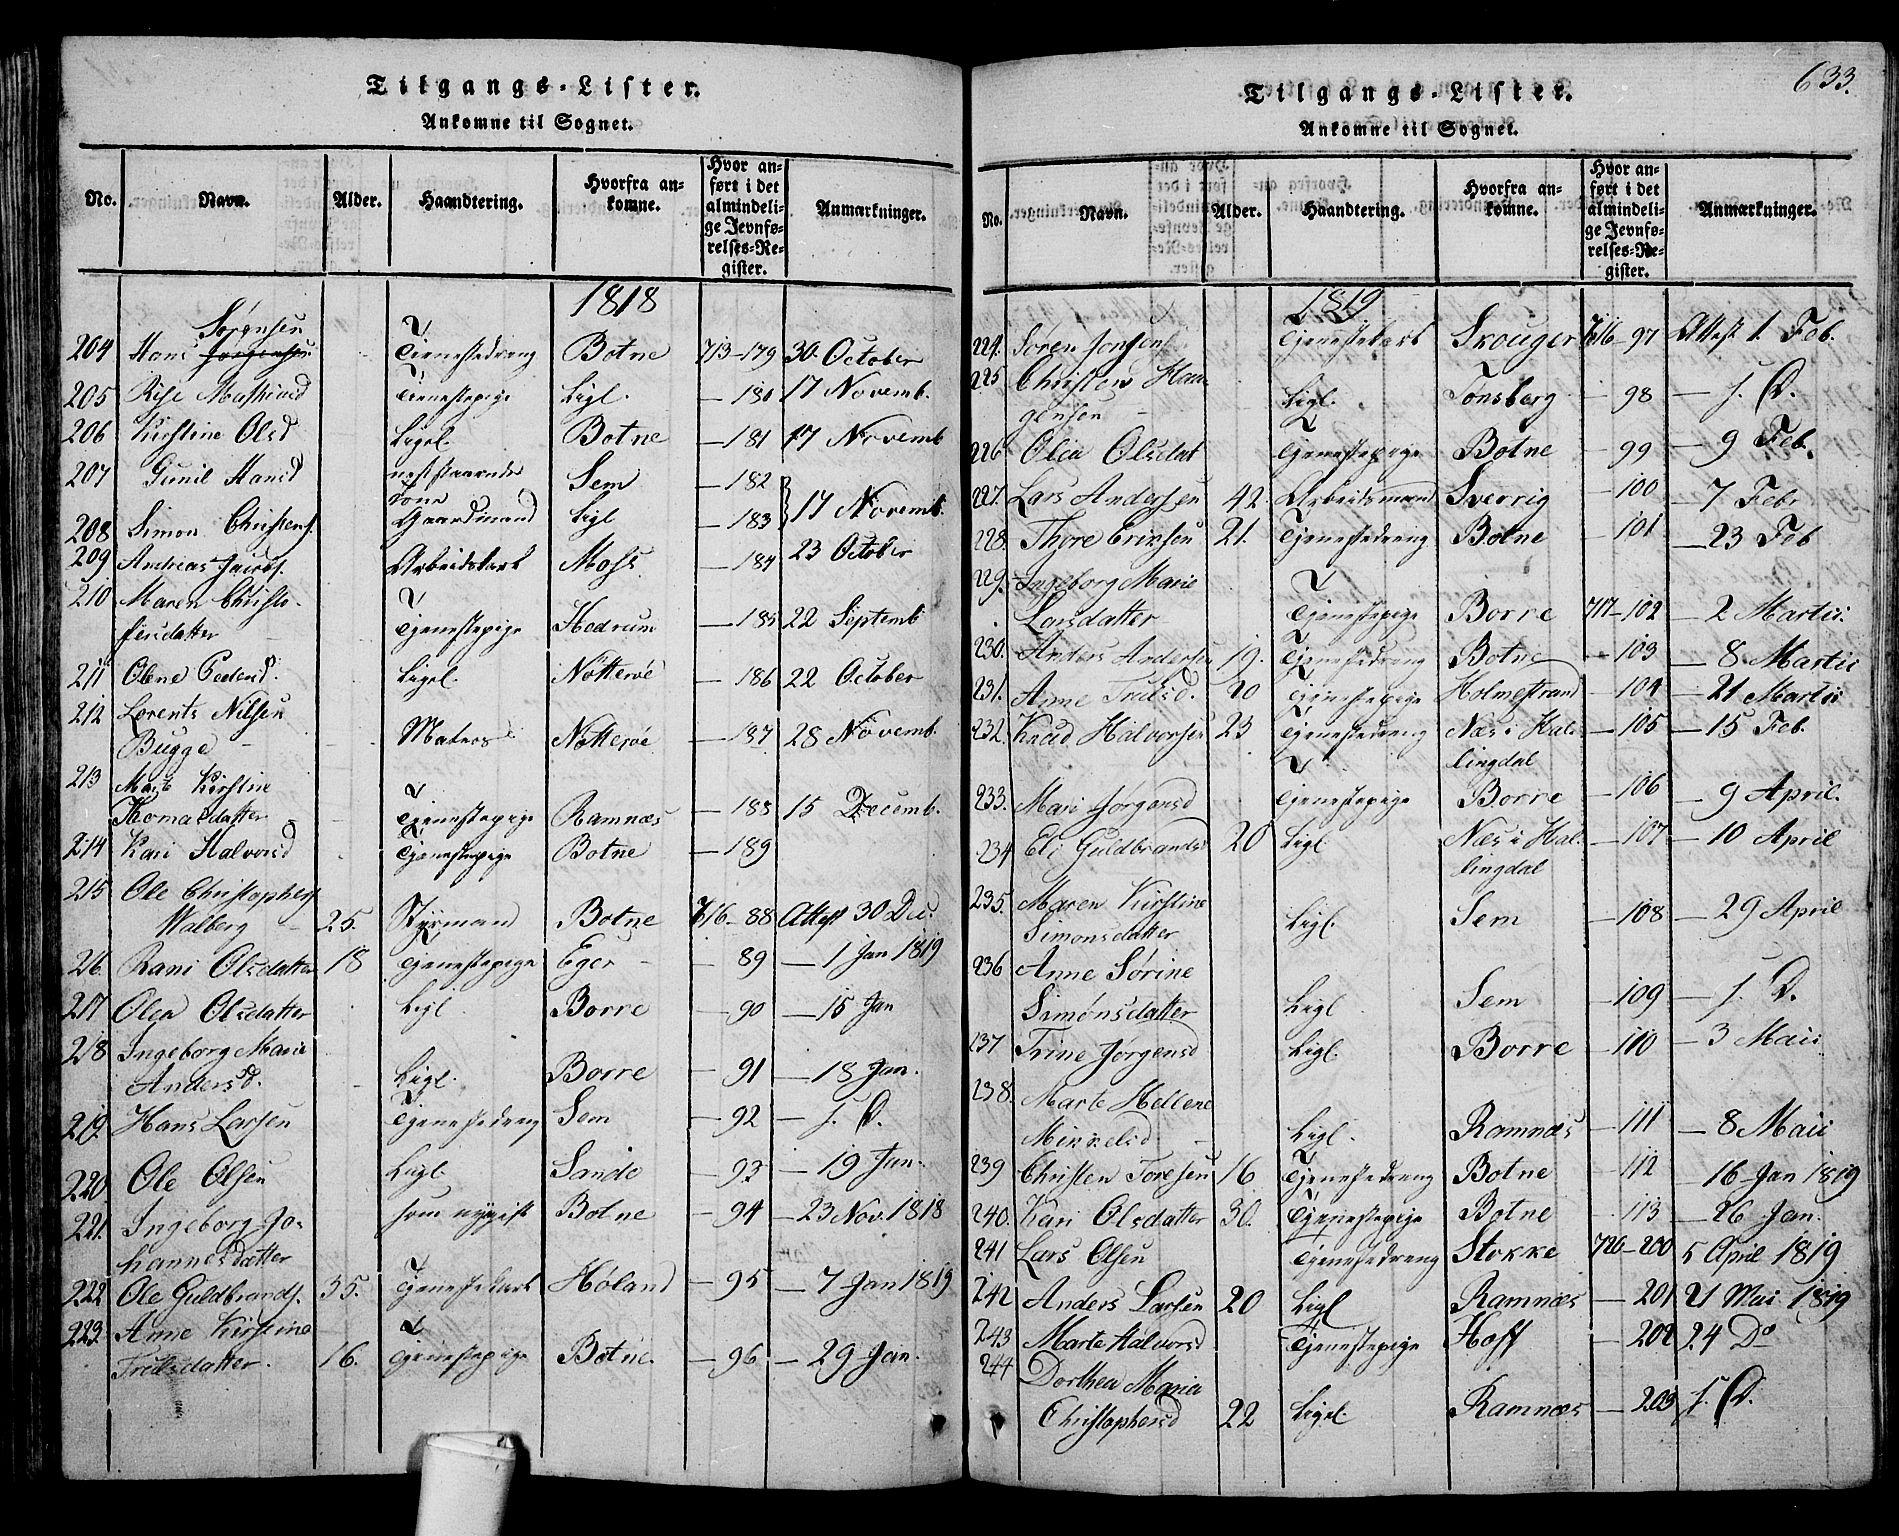 Tilgangs-Lister.
Ankomne til Sognet.
No. Navn. Alder. Haandtering. Hvorfra ankomne. Hvor anført i det almindelige Jevnførelses-Register. Anmærkninger.
1818
Sørensen
204 Hans Jørgensen Tjenestedreng Botne 713-179 30 October
205 Tjenestepige Ligl. - 180 17 Novemb.
206 Kirstine Olsd Ligel. Botne - 181 17 Novemb
207 Gunil Hansd Sem - 182
Kone
208 Simon Christens. Gaardmand Ligl - 183 17 Novemb.
209 Andreas Jacobs. Arbeidskarl Moss - 184 23 October
210 Maren Christo-
fersdatter - Tjenestepige Hedrum - 185 22 Septemb
211 Olene Pedersd. Ligel. Nøtterøe - 186 22 October
212 Lorents Nilsen
Bugge - Matros Nøtterøe - 187 28 Novemb.
213 Marte Kirstine
Thomasdatter - Tjenestepige Ramnæs - 188 15 Decemb.
214 Kari Halvorsd Tjenestepige Botne - 189
215 Ole Christophers
Walberg - 25. Styrmand Botne 716-88 Attest 30 Dec.
216 Rani Olsdatter 18 Tjenestepige Eger - - 89 - 1 Jan 1819
217 Olea Olsdatter Ligl. Borre - 90 - 15 Jan
218 Ingeborg Marie
Andersd. - Ligl. Borre - 91 - 18 Jan.
219 Hans Larsen Tjenestedreng Sem - 92 - s. D.
220 Ole Olsen Ligl. Sande - 93 - 19 Jan.
221. Ingeborg Jo-
hannesdatter som nygift Botne - 94 - 23 Nov. 1818
222 Ole Guldbrands. 35. Tjenestekarl Høland - 95 - 7 Jan 1819
223. Anne Kirstine
Frilsdatter. 16. Tjenestepige Botne. - 96 - 29 Jan.
633.
Tilgangs-Lister.
Ankomne til Sognet.
No. Navn. Alder. Haandtering. Hvorfra ankomne. Hvor anført i det almindelige Jevnførelses-Register. Anmærkninger.
1819
224. Søren Jonsen Tjenestekarl Skouger 716-97 Attest 1. Feb.
225 Christen Haa-
gensen - Ligl. Tønsberg - 98 - s. D.
226 Olea Olsdat Tjenestepige Botne - 99 - 9 Feb.
227. Lars Andersen 42. Arbeidsmand Sverrig - 100 - 7 Febr
228. Thore Eriksen 21. Tjenestedreng Botne - 101 - 23 Feb
229. Ingeborg Marie
Larsdatter - Tjenestepige Borre 717-102 - 2 Martii.
230. Anders Andersen 19. Tjenestedreng Botne - 103 - 8 Martii
231. Anne Trulsd. 20 Tjenestepige Holmestrand - 104 - 21 Martii
232. Knud Halvorsen 23 Tjenestedreng Næs i Hal-
lingdal - 105 - 15 Feb.
233. Mari Jørgensd Tjenestepige Borre - 106 - 9 April.
234 Eli Guldbrandsd 20 Ligl Næs i Hal-
lingdal - 107 - 10 April
235. Maren Kirstine
Simonsdatter Ligl. Sem - 108 - 29 April
236 Anne Sørine
Simonsdatter Ligl Sem - 109 - s. D.
237 Trine Jørgensd Ligl. Borre - 110 - 3 Maii
238. Marte Hellene
Mikkelsd - Ligl. Ramnæs - 111 - 8 Maii
239 Christen Toresen 16 Tjenestedreng Botne - 112 - 16 Jan 1819
240. Kari Olsdatter 30. Tjenestepige Botne - 113 - 26 Jan.
241 Lars Olsen Tjenestedreng Stokke 726-200 5 April 1819
242 Anders Larsen 20 Ligl Ramnæs - 201 21 Mai 1819
243 Marte Halvorsd Tjenestepige Hoff - 202 24 Do
244 Dorthea Maria
Christophersd 22 Ligel. Ramnæs - 203 s. D.